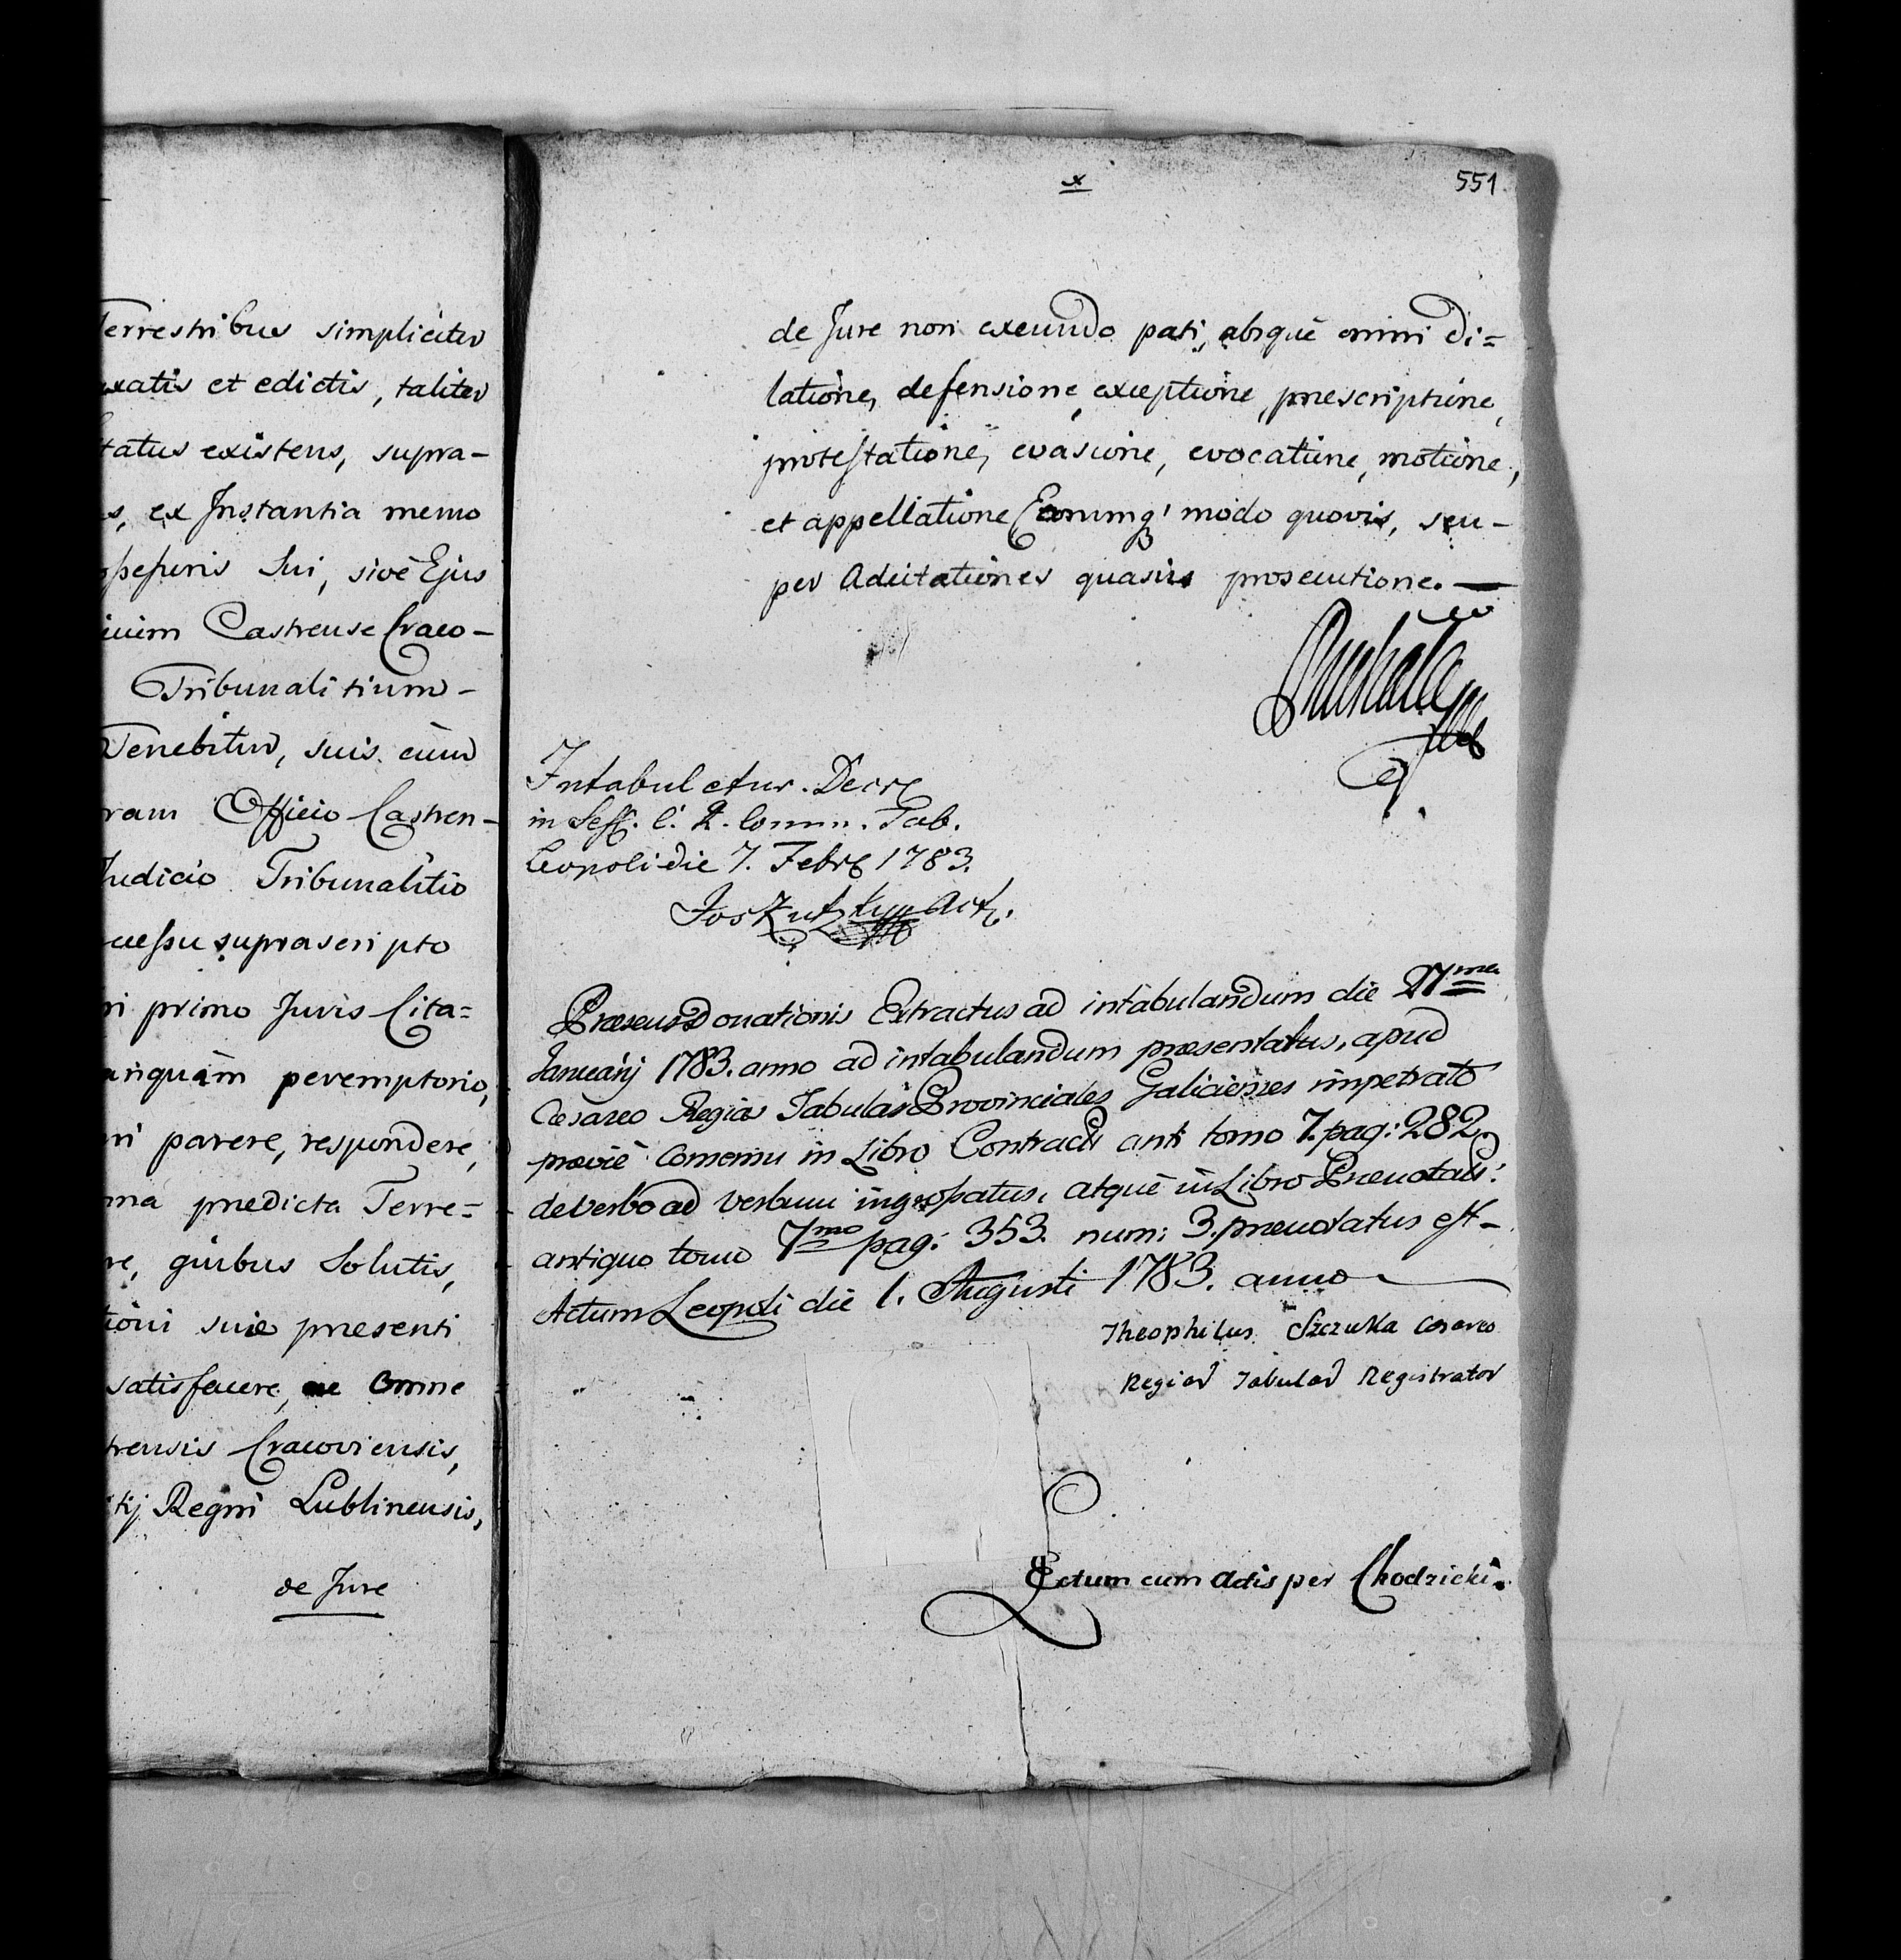 Terrestribus simpliciter
et edictis, taliter
existens, supra-
ex Instantia memo
Sui, sivè Ejus
Castrense Craco-
Tribunalitium-
Tenebitur, suis cum
Officio Castren-
Judicio Tribunalitio
suprascripto
primo Juris Cita=
peremptorio,
parere, respondere,
predicta Terre=
quibus Solutis,
suæ presenti
satisfacere, omne
Cracoviensis,
Regni Lublinensis,
de Jure
x
551
de Jure non exeundo pati, absquè omni di=
latione, defensione, exceptione, prescriptione,
protestatione, evasione, evocatione, motione,
et appellatione Earumq' modo quovis, seu-
per Adcitationes quasvis prosecutione. —
Intabuletur. Decr
in Sess. C. R. Comm. Tab.
Leopoli die 7. Febr 1783.
Præsens Donationis Extractus ad intabulandum die 27ma
Januarij 1783. anno ad intabulandum præsentatus, apud
Cæsareo Regias Tabulas Provinciales Galicienses impetrato
prævie Consensu in Libro Contract anti tomo 7. pag: 282.
de verbo ad verbum ingrossatus, atquè in Libro Prænotat:
antiquo tomo 7mo pag: 353. num: 3. prænotatus est-
Actum Leopoli die 1. Augusti 1783. anno
Theophilus Szczuka Cesareo
Regiar Tabular Registrator
Lectum cum Actis per Chodzicki.